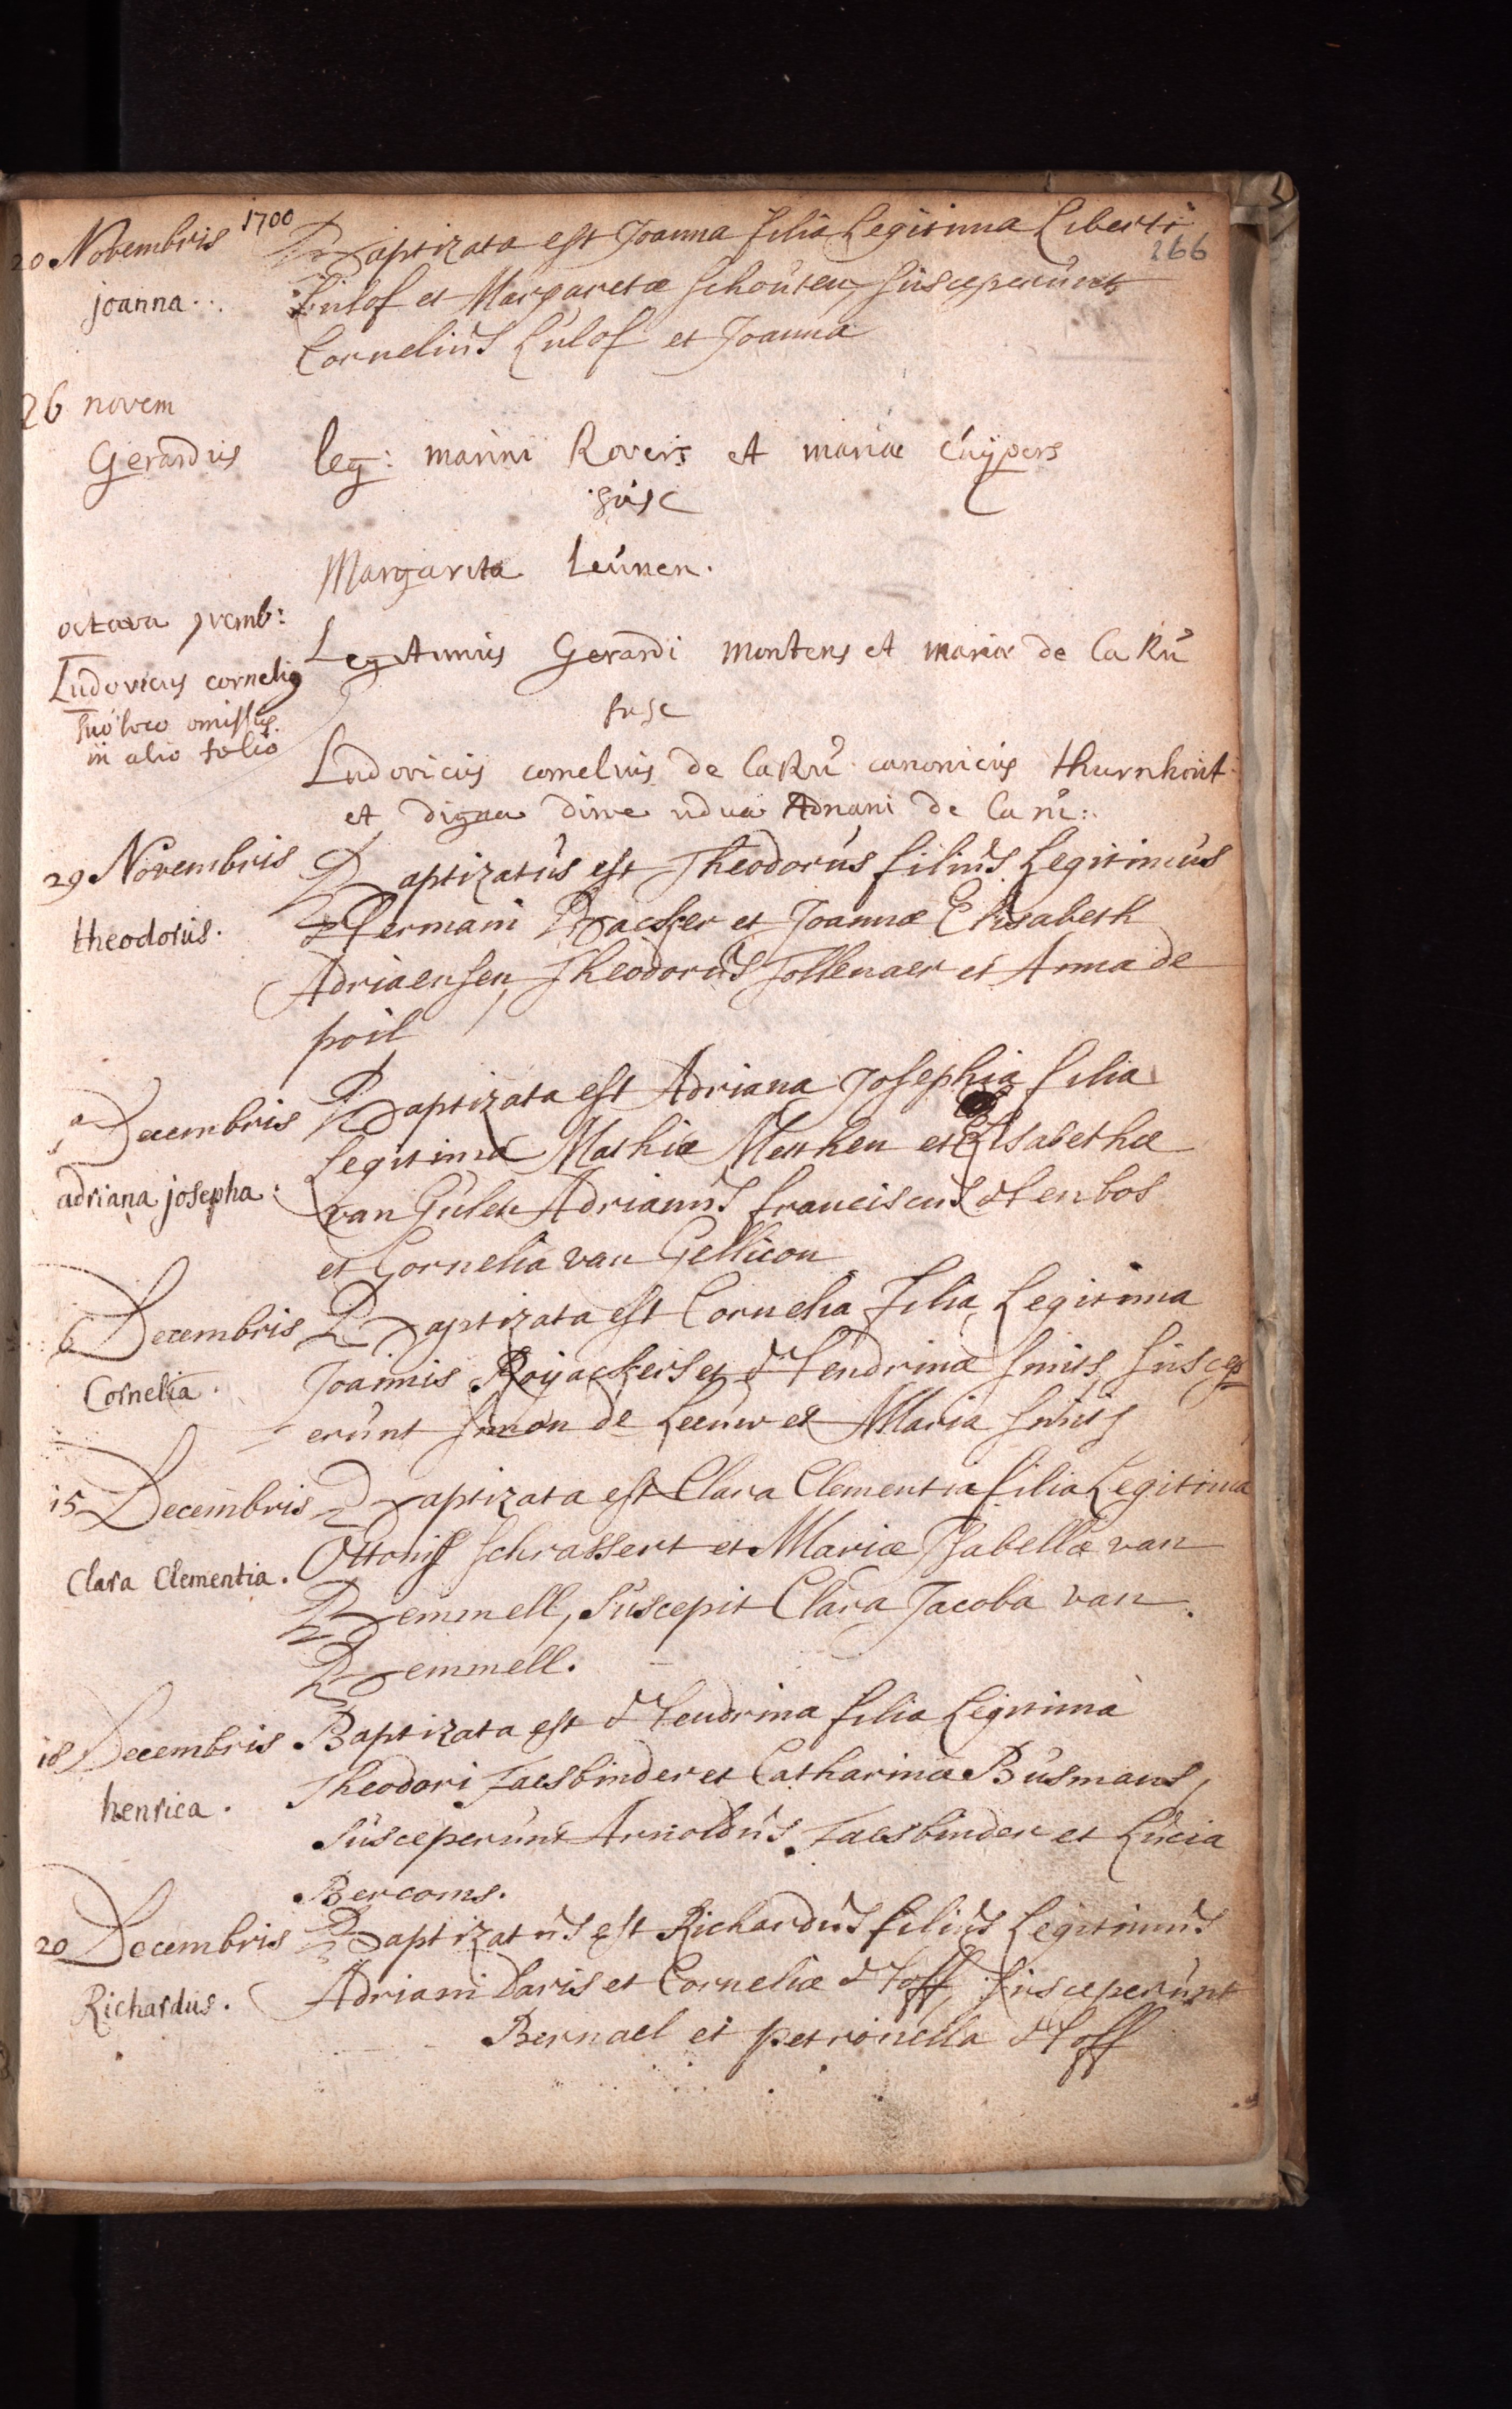 1700
266
20 Novembris
joanna..
Baptizata est Joanna filia Legitima Liberti
Lulof et Margaretæ Schouten, susceperunt
Cornelius Lulof et Joanna
26 novem
Gerardus
leg: marini Rovers et mariæ Cuÿpers
susc
Margarita Leunen.
octava
Ludovicus cornelius
suo loco omissus.
in alio folio
Legitimus Gerardi montens et mariæ de la Ru
susc
Ludovicus cornelius de la Ru canonicus thurnhout
et digna vidua Adriani de la ru:.
29 Novembris
theodorus.
Baptizatus est Theodorus filius Legitimus
Hermani Backer et Joannæ Elisabeth
Adriaensen, Theodorus Tollenaer et Anna de
poil
Decembris
adriana josepha:
Baptizata est Adriana Josephia filia
Legitima Mathiæ Menthen et Elisabethæ
van Gulck Adrianus franciscus Henbos
et Cornelia van Gellicon
6 Decembris
Cornelia.
Baptizata est Cornelia Filia Legitima
Joannis Roijackers et Hendrinæ smits, suscep
erunt simon de Leeuw et Maria smits
15 Decembris
Clara Clementia.
Baptizata est Clara Clementia filia Legitima
Ottonis schrassert et Mariæ Isabellæ van
Bemmell, suscepit Clara Jacoba van
Bemmell.
18 Decembris
henrica.
Baptizata est Hendrina filia Legitima
Theodori Faesbinder et Catharinæ Busmans,
susceperunt Arnoldus Faesbinder et Lucia
Bercoms.
20 Decembris
Richardus.
Baptizatus est Richardus filius Legitimus
Adriani Daris et Corneliæ Hoff, susceperunt
Bernael et petronella Hoff